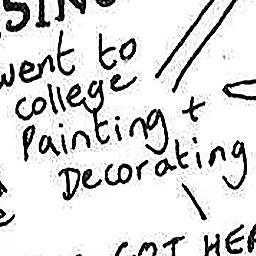 went to
college
Painting +
Decorating
GOT